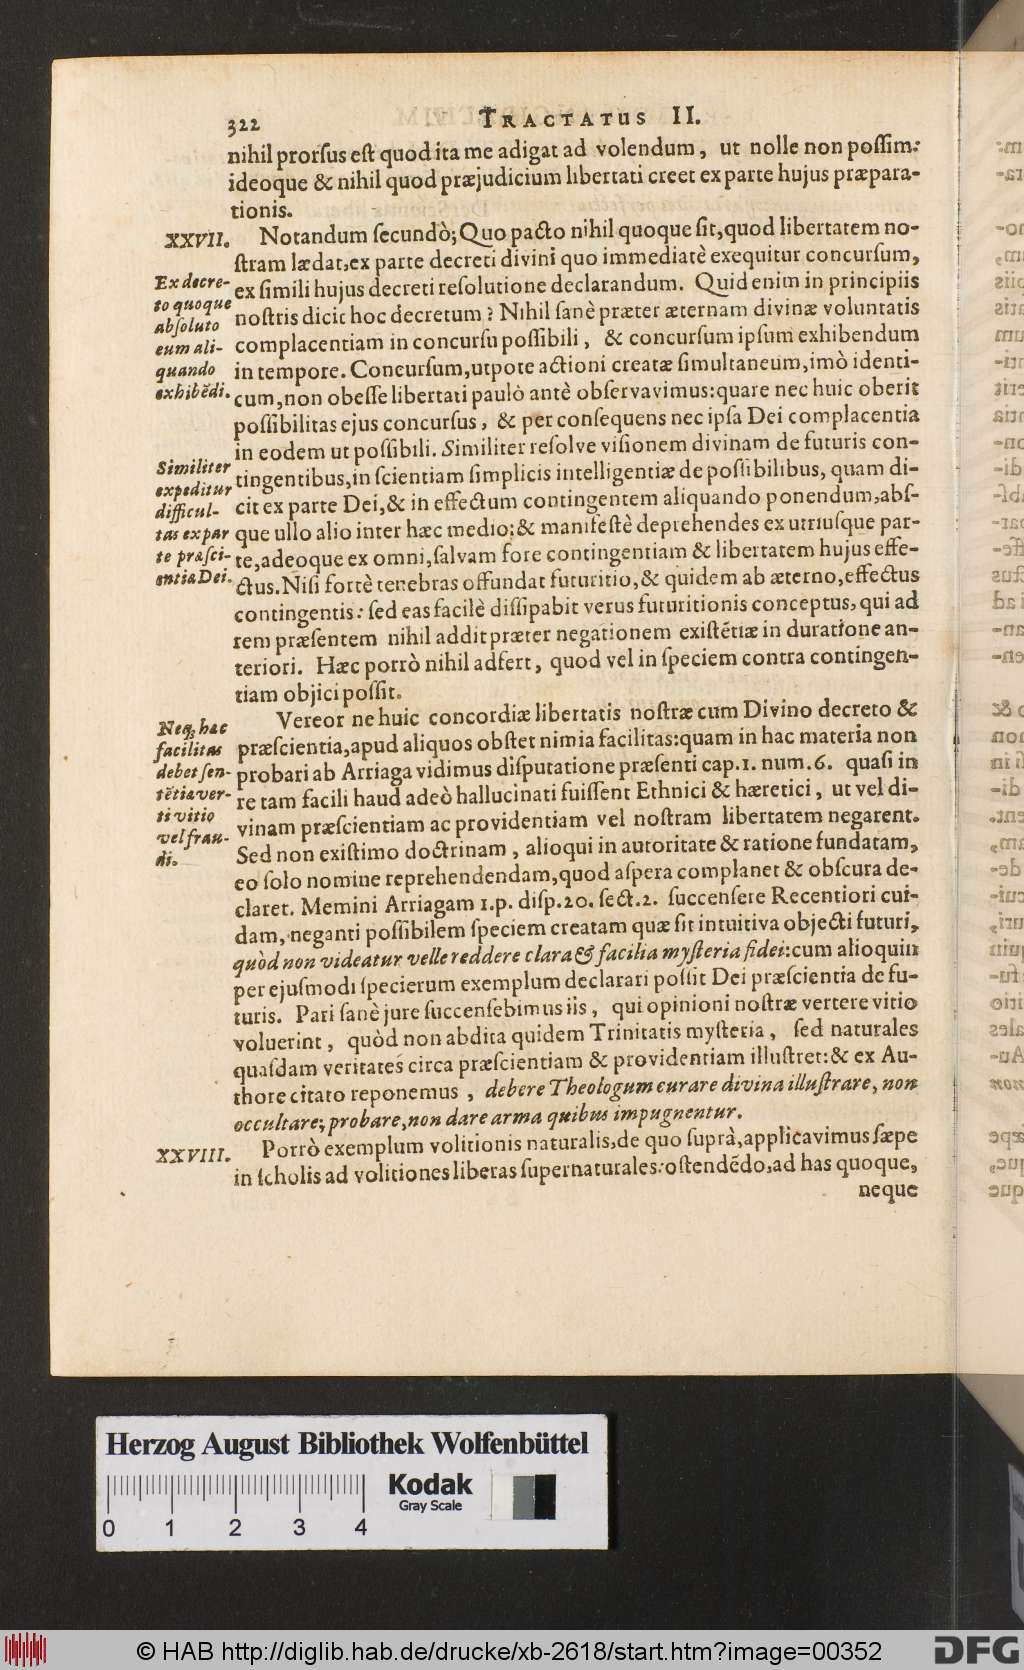 322 TRACTATUS II.
nihil prorſus eſt quod ita me adigat ad volendum, ut nolle non poſſim:
ideoque & nihil quod præjudicium libertati creet ex parte hujus præpara-
tionis.
XXVII. Notandum ſecundò; Quo pacto nihil quoque ſit, quod libertatem no-
ſtram lædat, ex parte decreti divini quo immediatè exequitur concurſum,
Ex decre-
to quoque
abſoluto
eum ali-
quando
exhibẽdi.
ex ſimili hujus decreti reſolutione declarandum. Quid enim in principiis
noſtris dicit hoc decretum? Nihil ſanè præter æternam divinæ voluntatis
complacentiam in concurſu poſſibili, & concurſum ipſum exhibendum
in tempore. Concurſum, utpote actioni creatæ ſimultaneum, imò identi-
cum, non obeſſe libertati paulò antè obſervavimus: quare nec huic oberit
poſſibilitas ejus concurſus, & per conſequens nec ipſa Dei complacentia
in eodem ut poſſibili. Similiter reſolve viſionem divinam de futuris con-
Similiter
expeditur
difficul-
tas ex par
te præſci-
entiæ Dei.
tingentibus, in ſcientiam ſimplicis intelligentiæ de poſſibilibus, quam di-
cit ex parte Dei, & in effectum contingentem aliquando ponendum, abſ-
que ullo alio inter hæc medio: & manifeſtè deprehendes ex utriuſque par-
te, adeoque ex omni, ſalvam fore contingentiam & libertatem hujus effe-
ctus. Niſi fortè tenebras offundat futuritio, & quidem ab æterno, effectus
contingentis: ſed eas facilè diſſipabit verus futuritionis conceptus, qui ad
rem præſentem nihil addit præter negationem exiſtẽtiæ in duratione an-
teriori. Hæc porrò nihil adfert, quod vel in ſpeciem contra contingen-
tiam objici poſſit.
Neq; hæc
facilitas
debet ſen-
tẽtiæ ver-
ti vitio
vel frau-
di.
Vereor ne huic concordiæ libertatis noſtræ cum Divino decreto &
præſcientia, apud aliquos obſtet nimia facilitas: quam in hac materia non
probari ab Arriaga vidimus diſputatione præſenti cap. 1. num. 6. quaſi in
re tam facili haud adeò hallucinati fuiſſent Ethnici & hæretici, ut vel di-
vinam præſcientiam ac providentiam vel noſtram libertatem negarent.
Sed non exiſtimo doctrinam, alioqui in autoritate & ratione fundatam,
eo ſolo nomine reprehendendam, quod aſpera complanet & obſcura de-
claret. Memini Arriagam 1. p. diſp. 20. ſect. 2. ſuccenſere Recentiori cui-
dam, neganti poſſibilem ſpeciem creatam quæ ſit intuitiva objecti futuri,
quòd non videatur velle reddere clara & facilia myſteria fidei: cum alioquin
per ejuſmodi ſpecierum exemplum declarari poſſit Dei præſcientia de fu-
turis. Pari ſanè jure ſuccenſebimus iis, qui opinioni noſtræ vertere vitio
voluerint, quòd non abdita quidem Trinitatis myſteria, ſed naturales
quaſdam veritates circa præſcientiam & providentiam illuſtret: & ex Au-
thore citato reponemus, debere Theologum curare divina illuſtrare, non
occultare; probare, non dare arma quibus impugnentur.
XXVIII. Porrò exemplum volitionis naturalis, de quo ſuprà, applicavimus ſæpe
in ſcholis ad volitiones liberas ſupernaturales: oſtendẽdo, ad has quoque,
neque
Herzog August Bibliothek Wolfenbüttel
Kodak
Gray Scale
0 1 2 3 4
© HAB http://diglib.hab.de/drucke/xb-2618/start.htm?image=00352
DFG